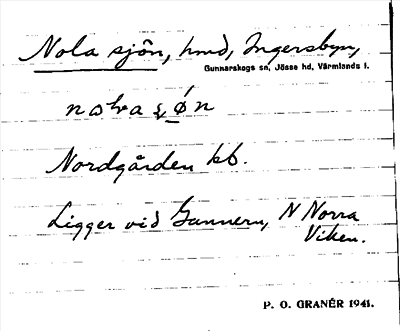 Nola sjön, hmd, Ingersbyn,
Gunnarskogs sn, Jösse hd, Värmlands l.
Nordgården kb.
Ligger vid Gunnern, N Norra
Viken.
P. O. GRANÉR 1941.